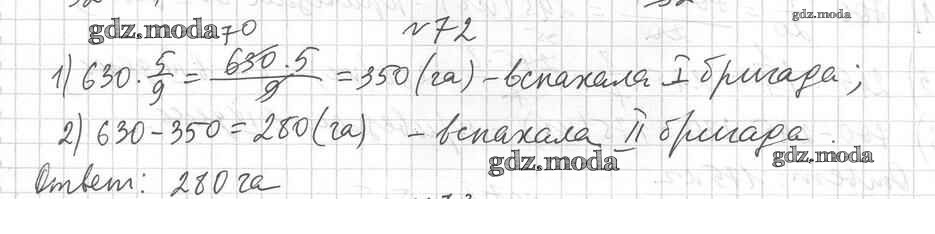 gdz.moda 70 №72 gdz.moda
1) 630 · 5/9 = 630·5/9 = 350 (га) – вспахала I бригада;
2) 630 – 350 = 280 (га) – вспахала II бригада.
gdz.moda gdz.moda
Ответ: 280 га